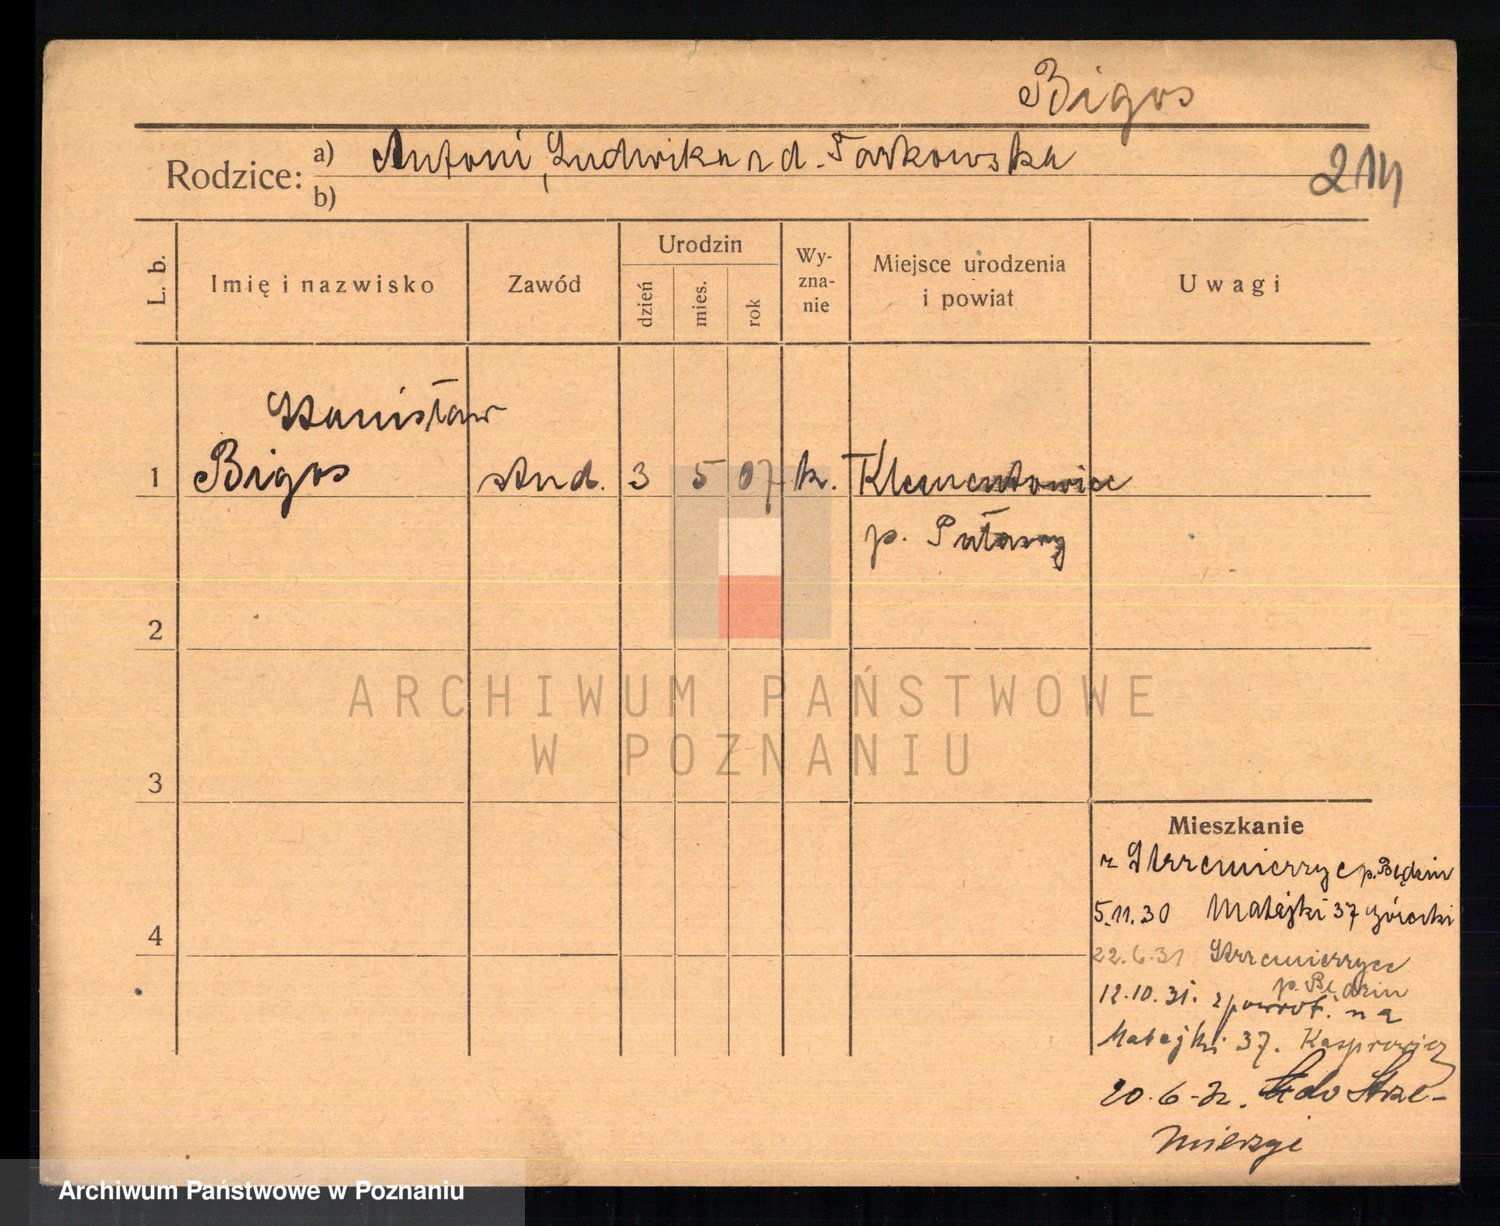 Bigos
Rodzice:
a) Antoni, Ludwika z d. Tarkowska
b)
214
L. b.
Imię i nazwisko
Zawód
Urodzin
dzień
mies.
rok
Wy-
zna-
nie
Miejsce urodzenia
i powiat
Uwagi
Stanisław
1 Bigos stud. 3 5 07 k. Klementowice
p. Puławy
2
3
4
ARCHIWUM PAŃSTWOWE
W POZNANIU
Mieszkanie
z Strzemierzyce p. Będzin
5.11.30 Matejki 37 Górecki
22.6.31 Strzemierzyce
p. Będzin
12.10.31. z powrot. na
Matejki 37. Kasprowicz
20.6.32. do Strze-
mierzyc
Archiwum Państwowe w Poznaniu